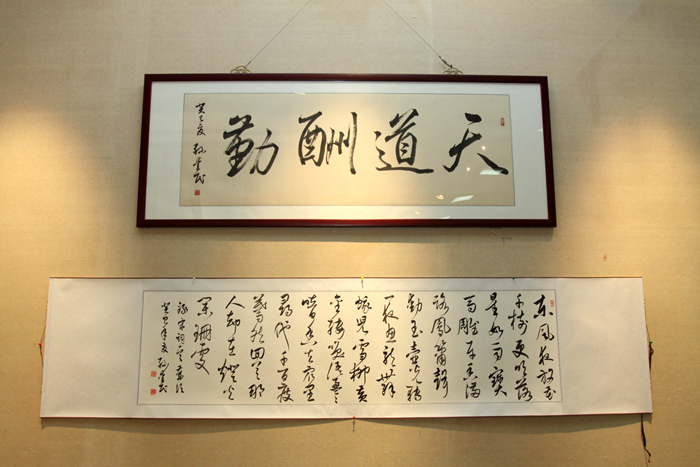 天道酬勤
癸巳夏
东风夜放花
千树更吹落
星如雨宝
马雕车香满
路凤箫声
动玉壶光转
一夜鱼龙舞
蛾儿雪柳黄
金缕笑语盈盈
暗香去众里
寻他千百度
蓦然回首那
人却在灯火
阑珊处
录宋词
癸巳年夏